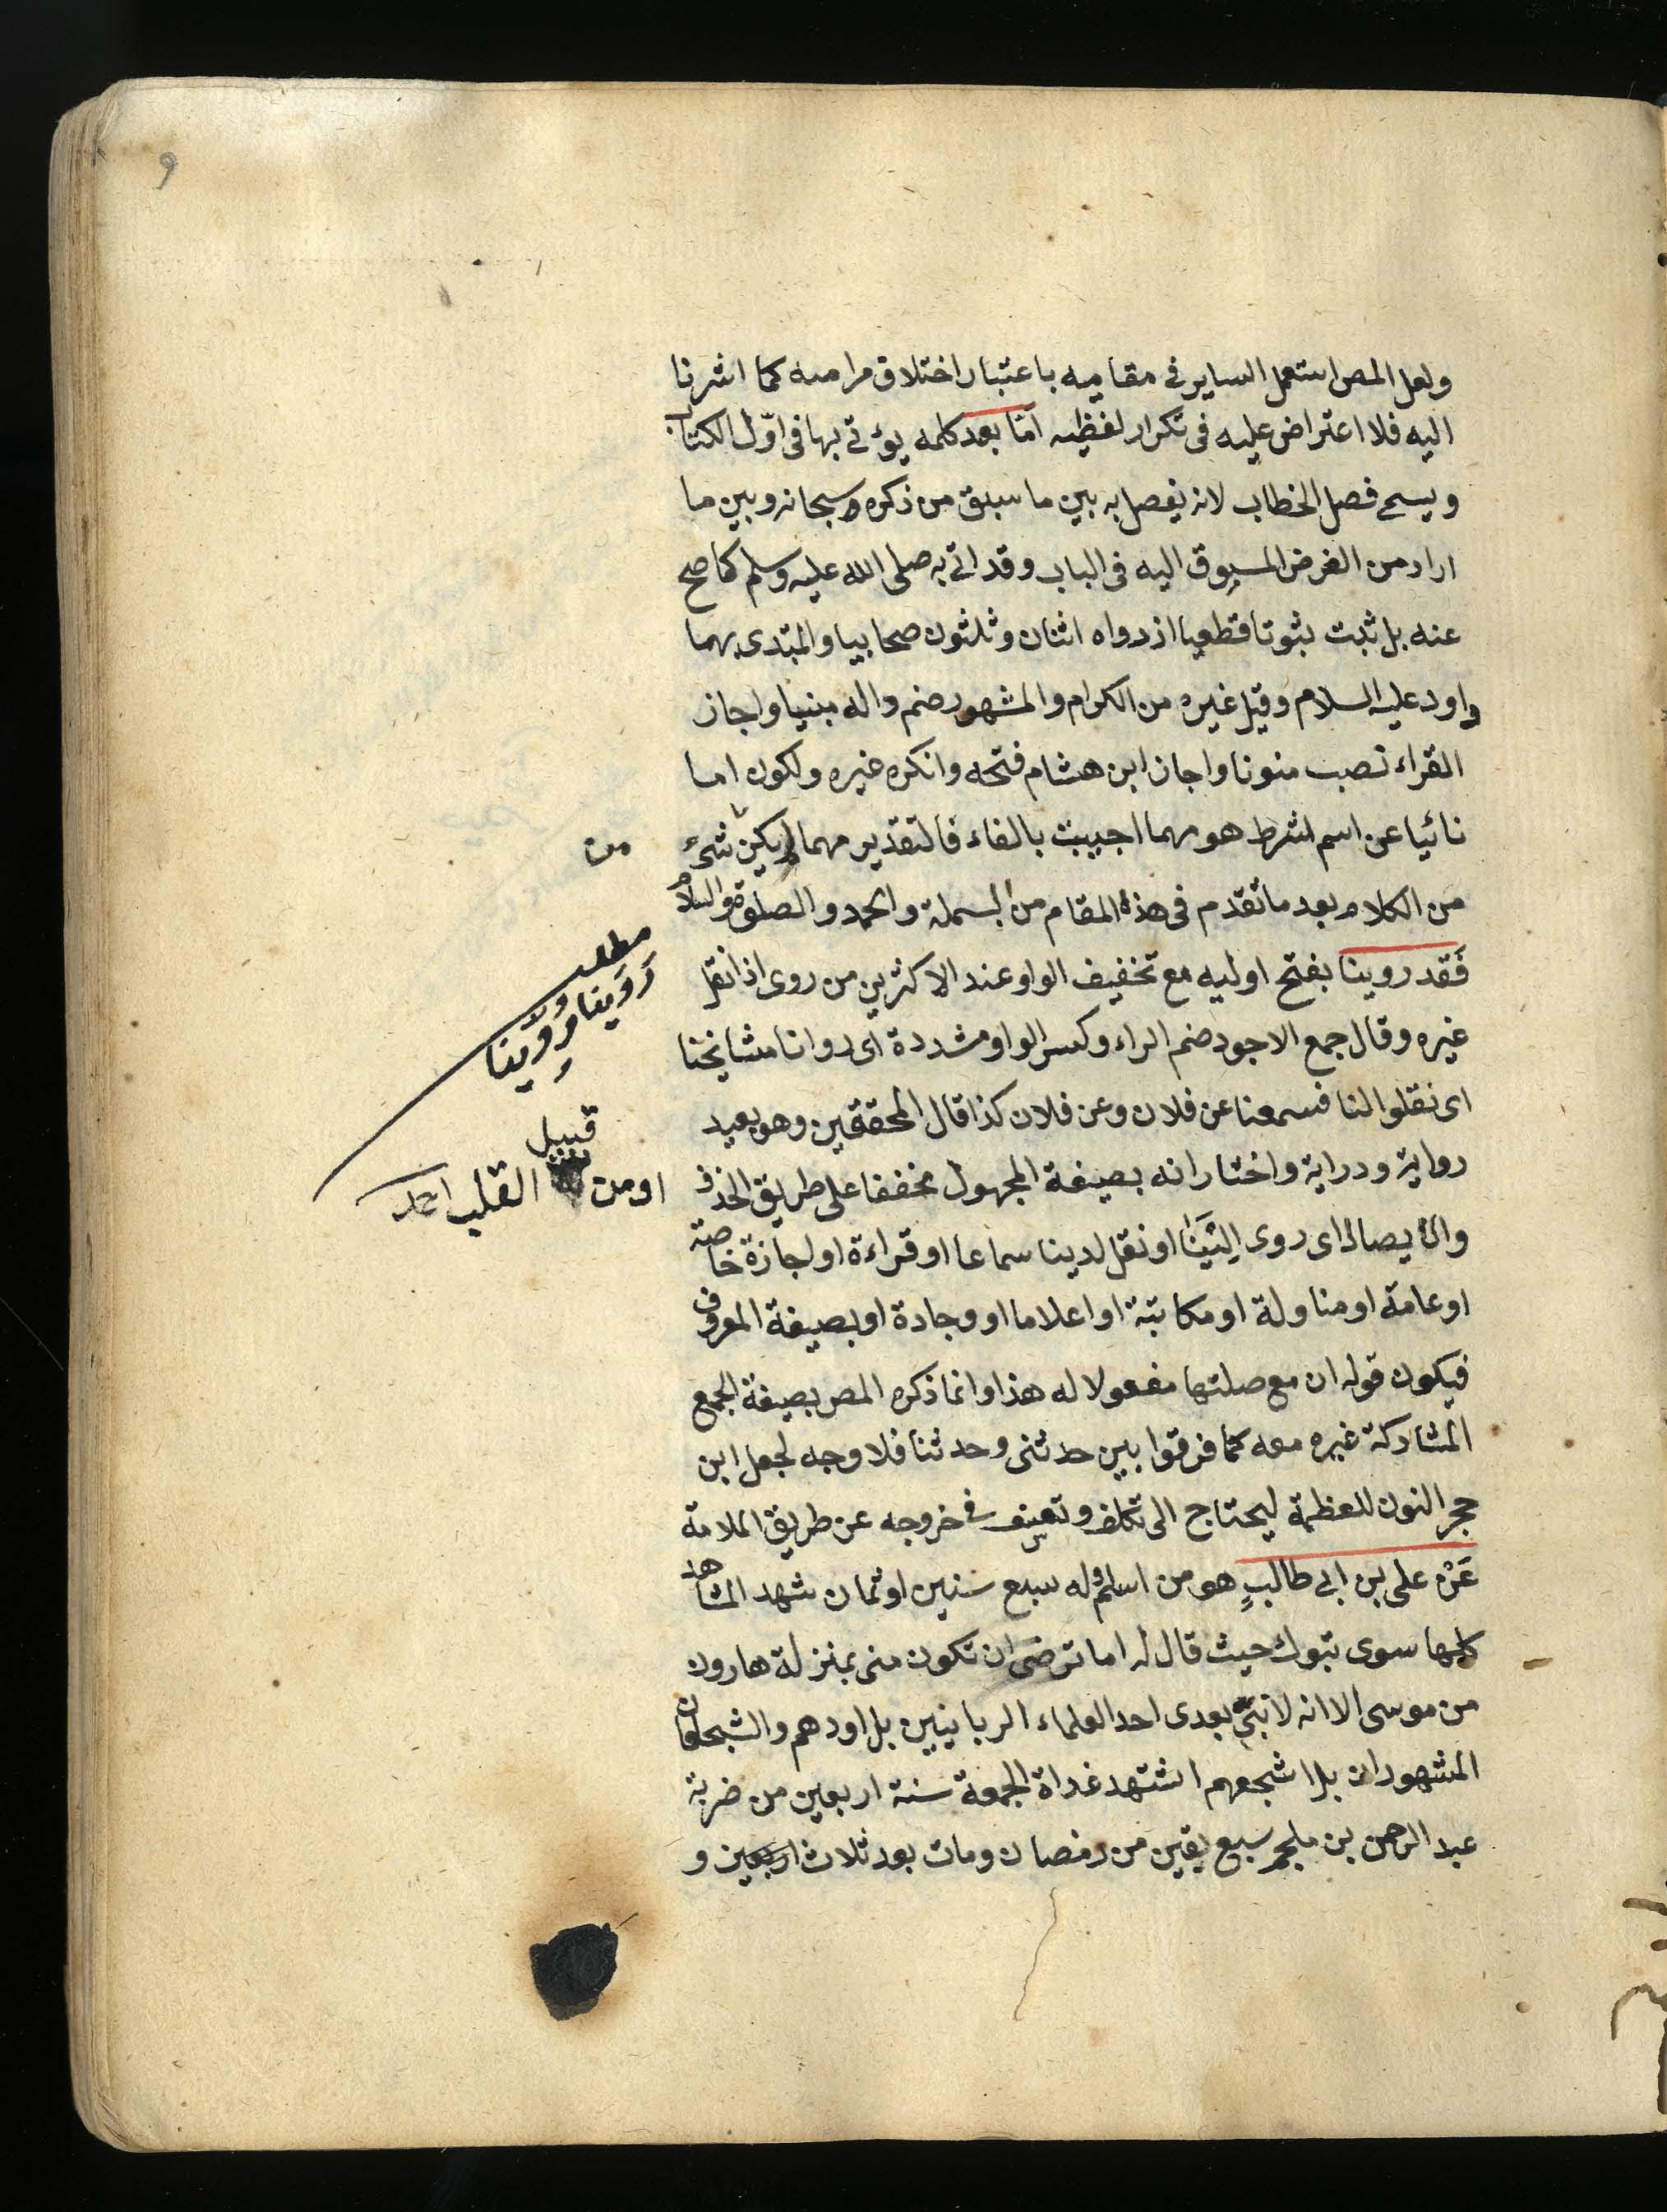 ولعل المص استعمل الساير فى مقاميه باعتبار اختلاق مرامه كما اشرنا
اليه فلا اعتراض عليه فى تكرار لفظيه امّا بعد كلمه يؤتى بها فى اوّل الكتاب
ويسمى فصل الخطاب لانه يفصل به بين ما سبق من ذكره سبحانه وبين ما
اراد من الغرض المسبوق اليه فى الباب وقد اتى به صلى الله عليه وسلم كما صح
عنه بل ثبت ثبوتا قطعيا اذ رواه اثنان وثلثون صحابيا والمبتدى بهما
داود عليه السلام وقيل غيره من الكرام والمشهور ضم داله مبنيا واجاز
القراء نصب منونا واجاز ابن هشام فتحه وانكره غيره ولكون اما
نائيا عن اسم شرط هو مهما اجيبت بالفاء فالتقدير مهما يكن شىء
من
من الكلام بعد ما تقدم فى هذه المقام من البسملة والحمد والصلوة والسلام
فَقد روينا بفتح اوليه مع تخفيف الواو عند الاكثرين من روى اذا نقل
مطلب
رَوَينا ورُوِّينا
غيره وقال جمع الاجود ضم الراء وكسر الواو مشددة اى روانا مشايخنا
اى نقلوا لنا فسمعنا عن فلان وعن فلان كذا قال المحققين وهو بعيد
رواية ودراية واختار انه بصيغة المجهول مخففا على طريق الحذف
قبيل
او من القلب احد
والايصال اى روى اِلَيْنَا او نقل لدينا سماعا او قراءة او اجازة خاصة
او عامة او مناولة او مكاتبة او اعلاما او وجادة او بصيغة المعروف
فيكون قوله ان مع صلتها مفعولا له هذا وانما ذكره المص بصيغة الجمع
المشاركة غيره معه كما فرقوا بين حدثنى وحدثنا فلا وجه لجعل ابن
حجر النون للعظمة ليحتاج الى تكلف وتعسف فى خروجه عن طريق الملامة
عَنْ على بن ابى طالبٍ هو من اسلم وله سبع سنين او ثمان شهد المشاهد
كلها سوى تبوك حيث قال له اما ترضى ان تكون منى بمنزلة هارون
من موسى الا انه لا نبىّ بعدى احد العلماء الربانيين بل اودهم والشجعان
المشهوران بل اشجعهم استشهد غداة الجمعة سنة اربعين من ضربة
عبد الرحمن بن ملجم سبع بقين من رمضان ومات بعد ثلاث و